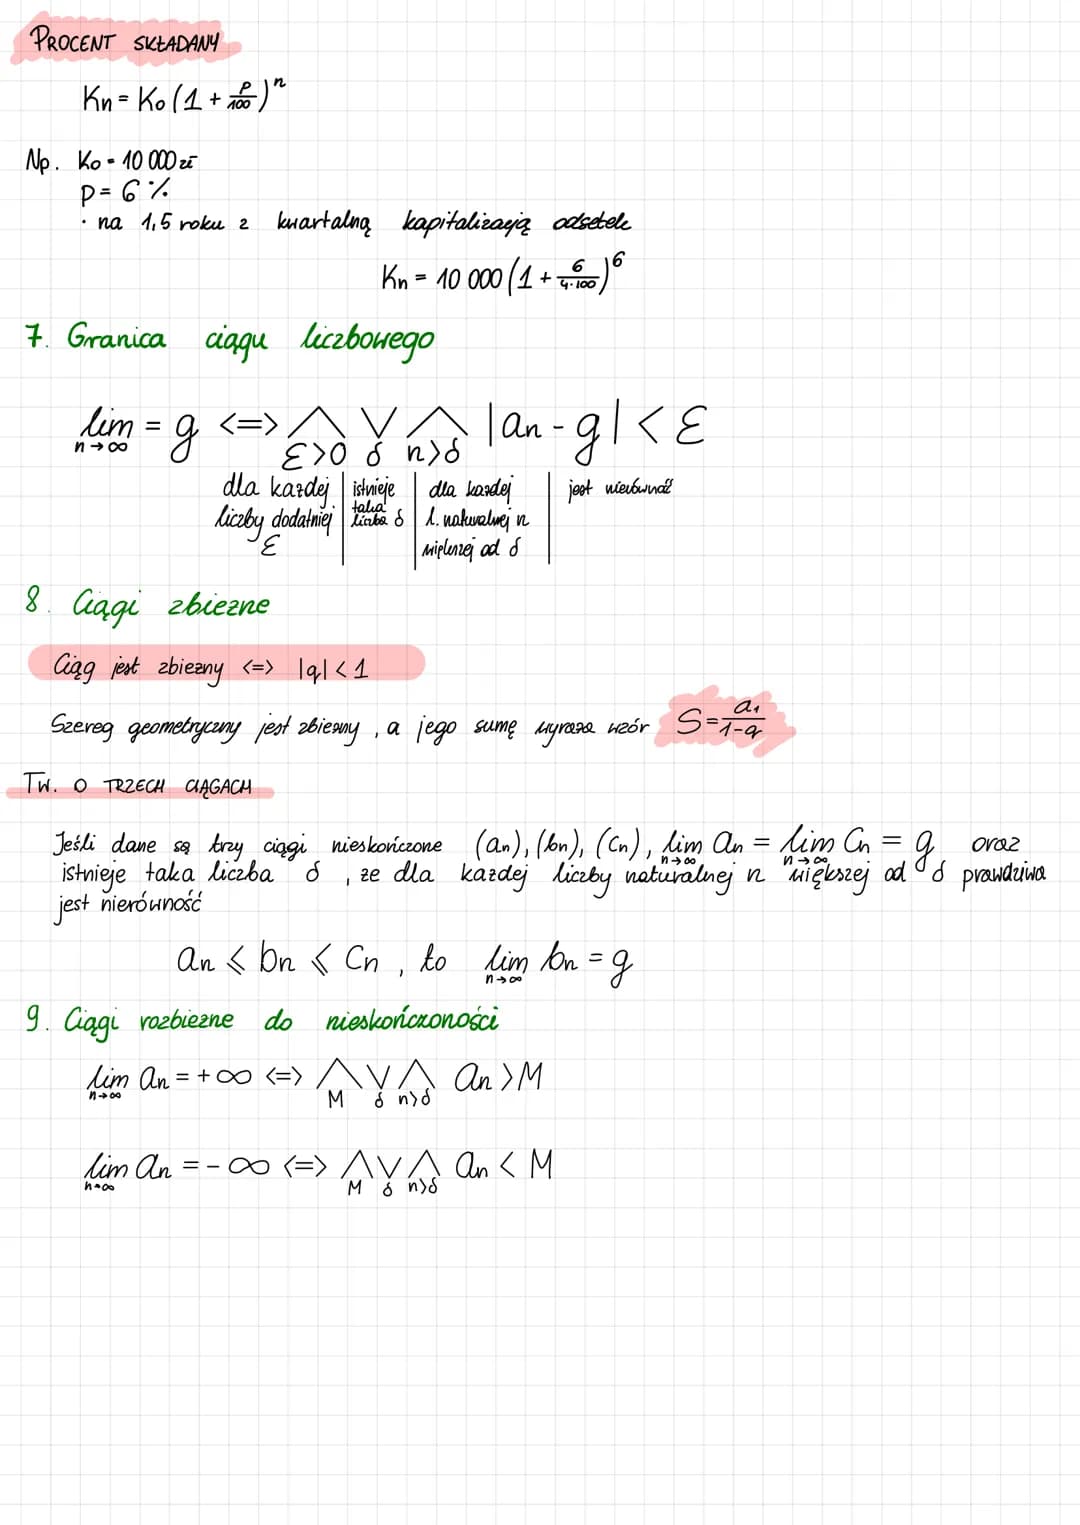 PROCENT SKŁADANY
Kn = Ko (1 + p/100)^n
Np. Ko = 10 000 zł
p = 6 %
· na 1,5 roku z kwartalną kapitalizacją odsetek
Kn = 10 000 (1 + 6/4·100)^6
7. Granica ciągu liczbowego
lim n→∞ = g <=> ⋀ ε>0 ⋁ δ ⋀ n>δ |an - g| < ε
dla każdej liczby dodatniej ε | istnieje taka liczba δ | dla każdej l. naturalnej n większej od δ | jest nierówność
8. Ciągi zbieżne
Ciąg jest zbieżny <=> |q| < 1
Szereg geometryczny jest zbieżny, a jego sumę wyraża wzór S = a₁/1-q
TW. O TRZECH CIĄGACH
Jeśli dane są trzy ciągi nieskończone (an), (bn), (Cn), lim n→∞ an = lim n→∞ Cn = g oraz
istnieje taka liczba δ, że dla każdej liczby naturalnej n większej od δ prawdziwa
jest nierówność
an ⩽ bn ⩽ Cn, to lim n→∞ bn = g
9. Ciągi rozbieżne do nieskończoności
lim n→∞ an = +∞ <=> ⋀ M ⋁ δ ⋀ n>δ an > M
lim n→∞ an = -∞ <=> ⋀ M ⋁ δ ⋀ n>δ an < M